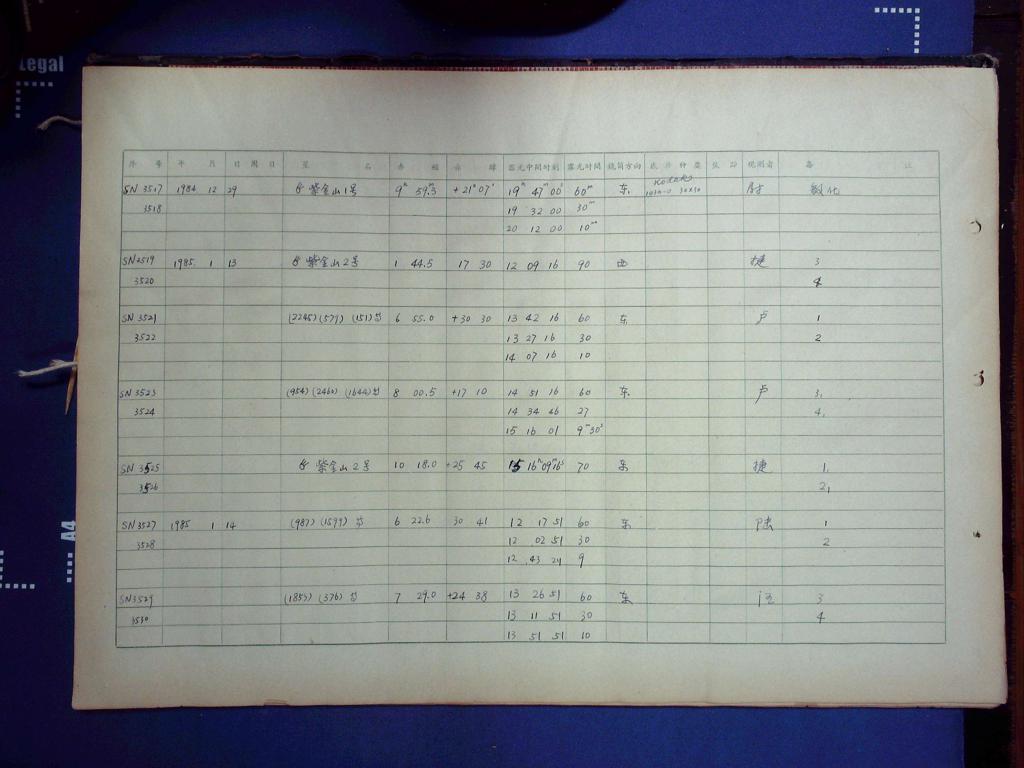 Legal
A4
序号 年 月 日 周日 星 名 赤 经 赤 纬 露光中间时刻 露光时间 镜筒方向 底片种类 观测者 备 注
SN 3517 1984 12 29 紫金山1号 9h 59.m3 +21° 07' 19h 47m 00s 60m 东 Kodak
3518 19 32 00 30m
20 12 00 10m
SN2519 1985 1 13 紫金山2号 1 44.5 17 30 12 09 16 90 西 捷 3
3520 4
SN 3521 (2245) (579) (151) 6 55.0 +30 30 13 42 16 60 东 卢 1
3522 13 27 16 30 2
14 07 16 10
SN 3523 (954) (2460) (1644) 8 00.5 +17 10 14 51 16 60 东 卢 3,
3524 14 34 46 27 4,
15 16 01 9m 30s
SN 3525 紫金山2号 10 18.0 +25 45 15 16h 09m 16s 70 东 捷 1,
3526 2,
SN 3527 1985 1 14 (987) (1599) 6 22.6 30 41 12 17 51 60 东 陆 1
3528 12 02 51 30 2
12 43 24 9
SN3529 (1853) (376) 7 29.0 +24 38 13 26 51 60 东 汪 3
3530 13 11 51 30 4
13 51 51 10